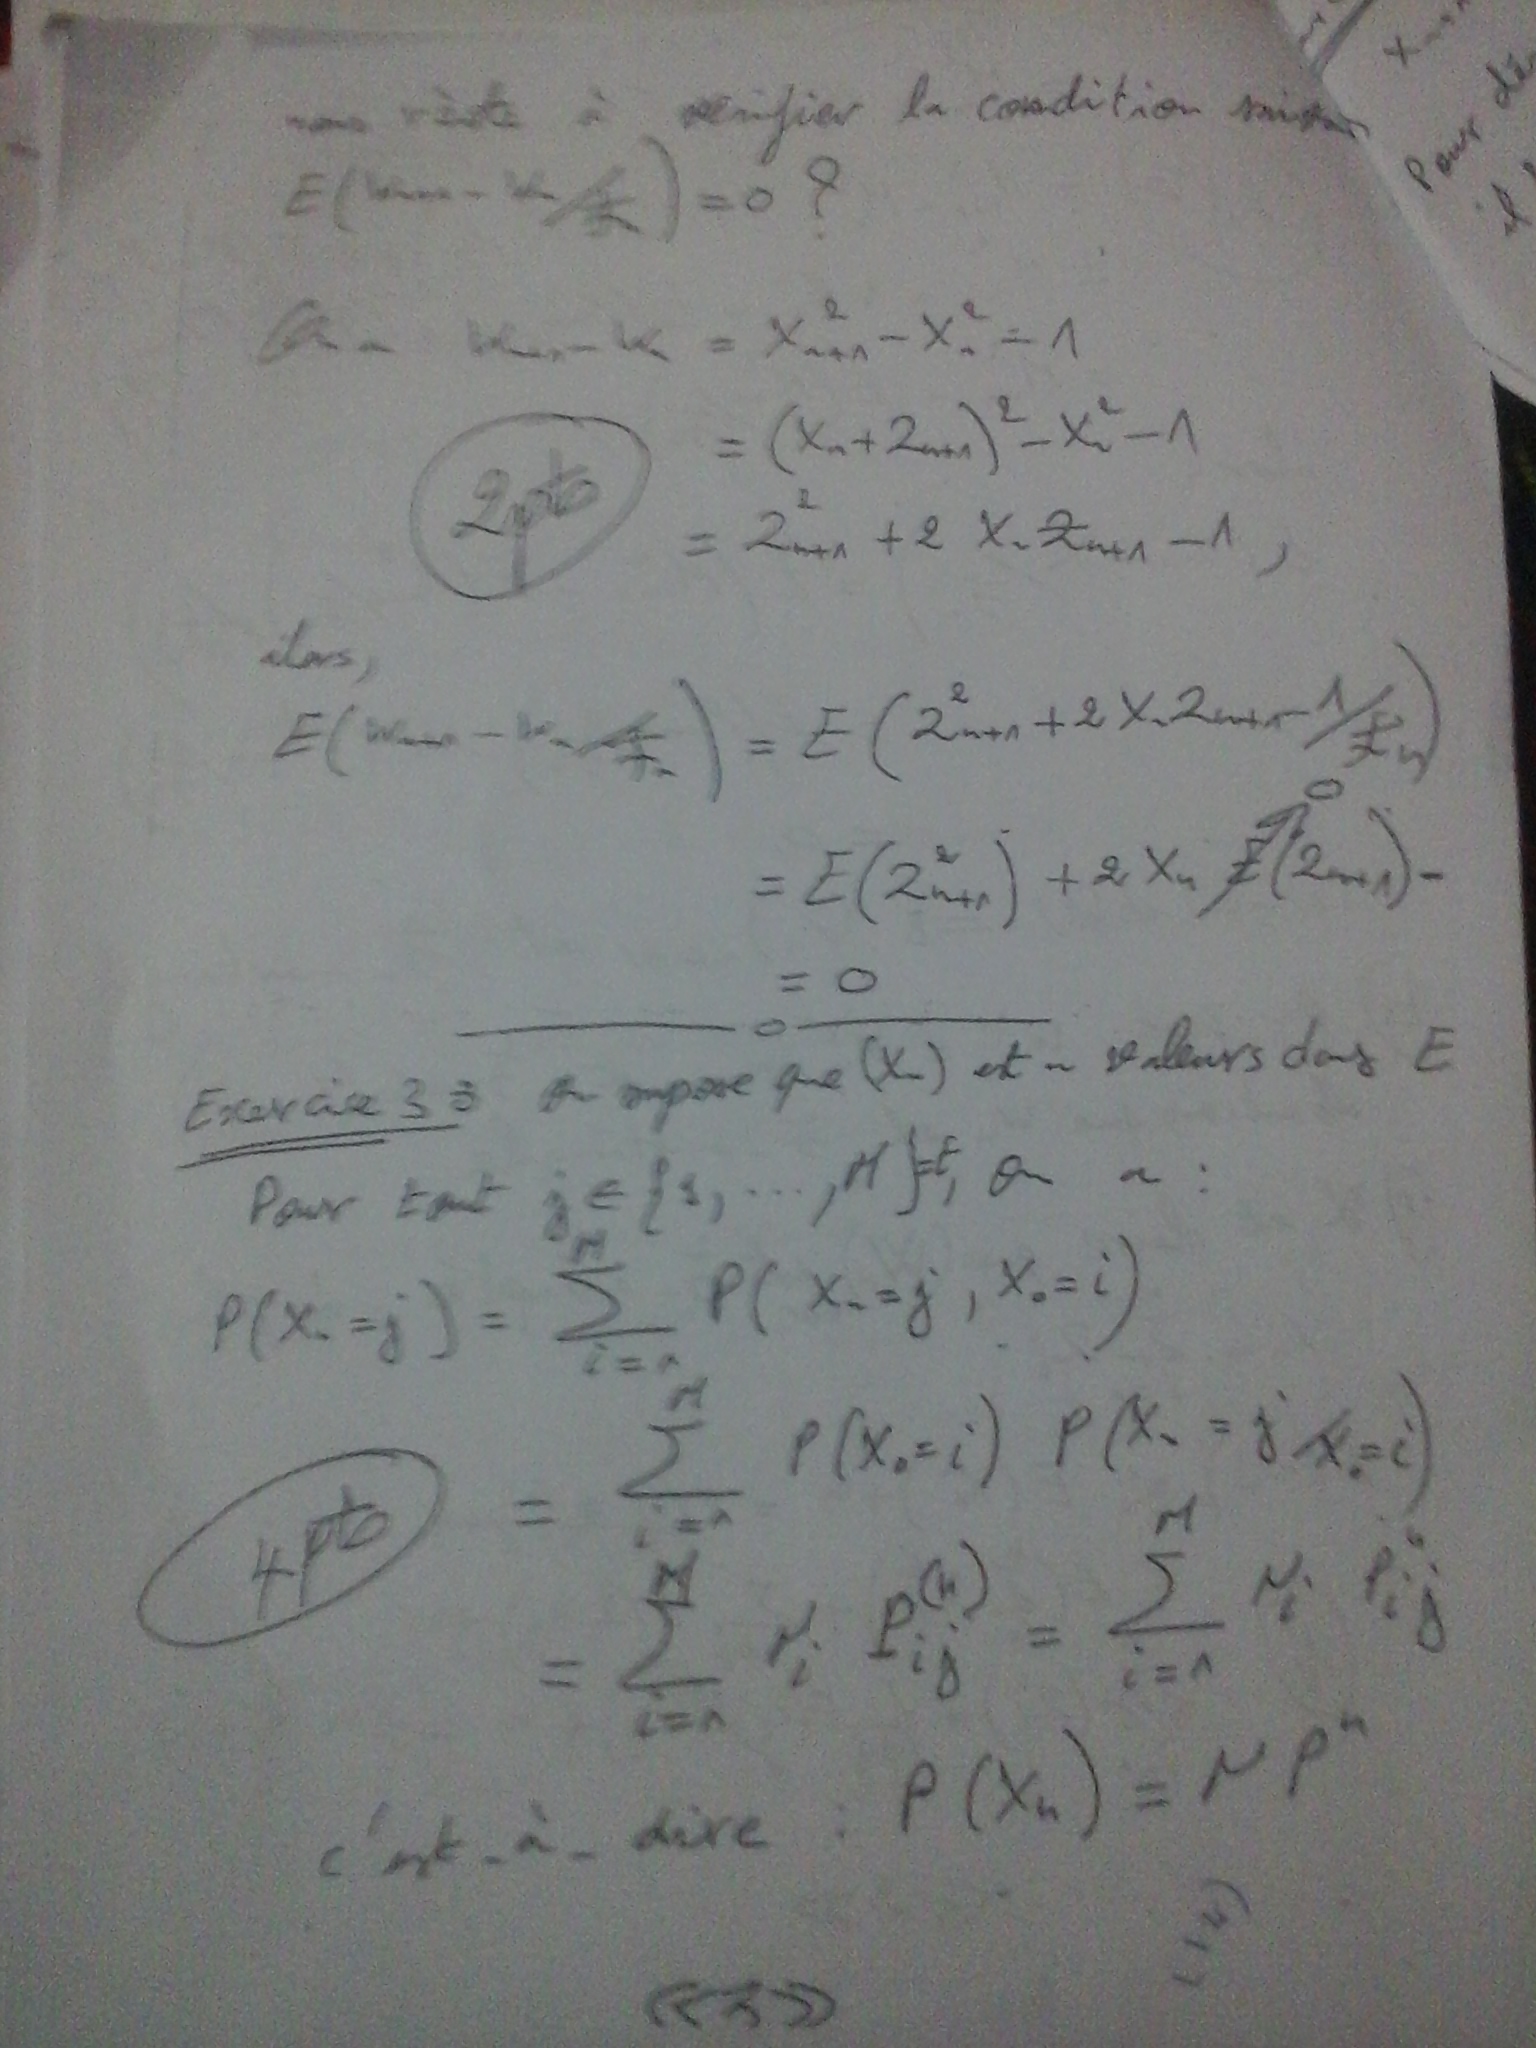 nous reste à vérifier la condition suivan
E(W_{n+1} - W_n / F_n) = 0 ?
On a W_{n+1} - W_n = X_{n+1}^2 - X_n^2 - 1
= (X_n + Z_{n+1})^2 - X_n^2 - 1
2pts
= Z_{n+1}^2 + 2 X_n Z_{n+1} - 1,
alors,
E(W_{n+1} - W_n / F_n) = E(Z_{n+1}^2 + 2 X_n Z_{n+1} - 1 / F_n)
0
= E(Z_{n+1}^2) + 2 X_n E(Z_{n+1}) -
= 0
Exercise 3: On suppose que (X_n) est a valeurs dans E
Pour tout j ∈ {1, ..., M} = E, On a :
P(X_n = j) = \sum_{i=1}^{M} P(X_n = j, X_0 = i)
= \sum_{i=1}^{M} P(X_0 = i) P(X_n = j / X_0 = i)
4pts
= \sum_{i=1}^{M} μ_i P_{ij}^{(n)} = \sum_{i=1}^{M} μ_i P_{ij}^n
c'est-à-dire : P(X_n) = μ P^n
<<3>>
X_{n+1}
Pour dé
il